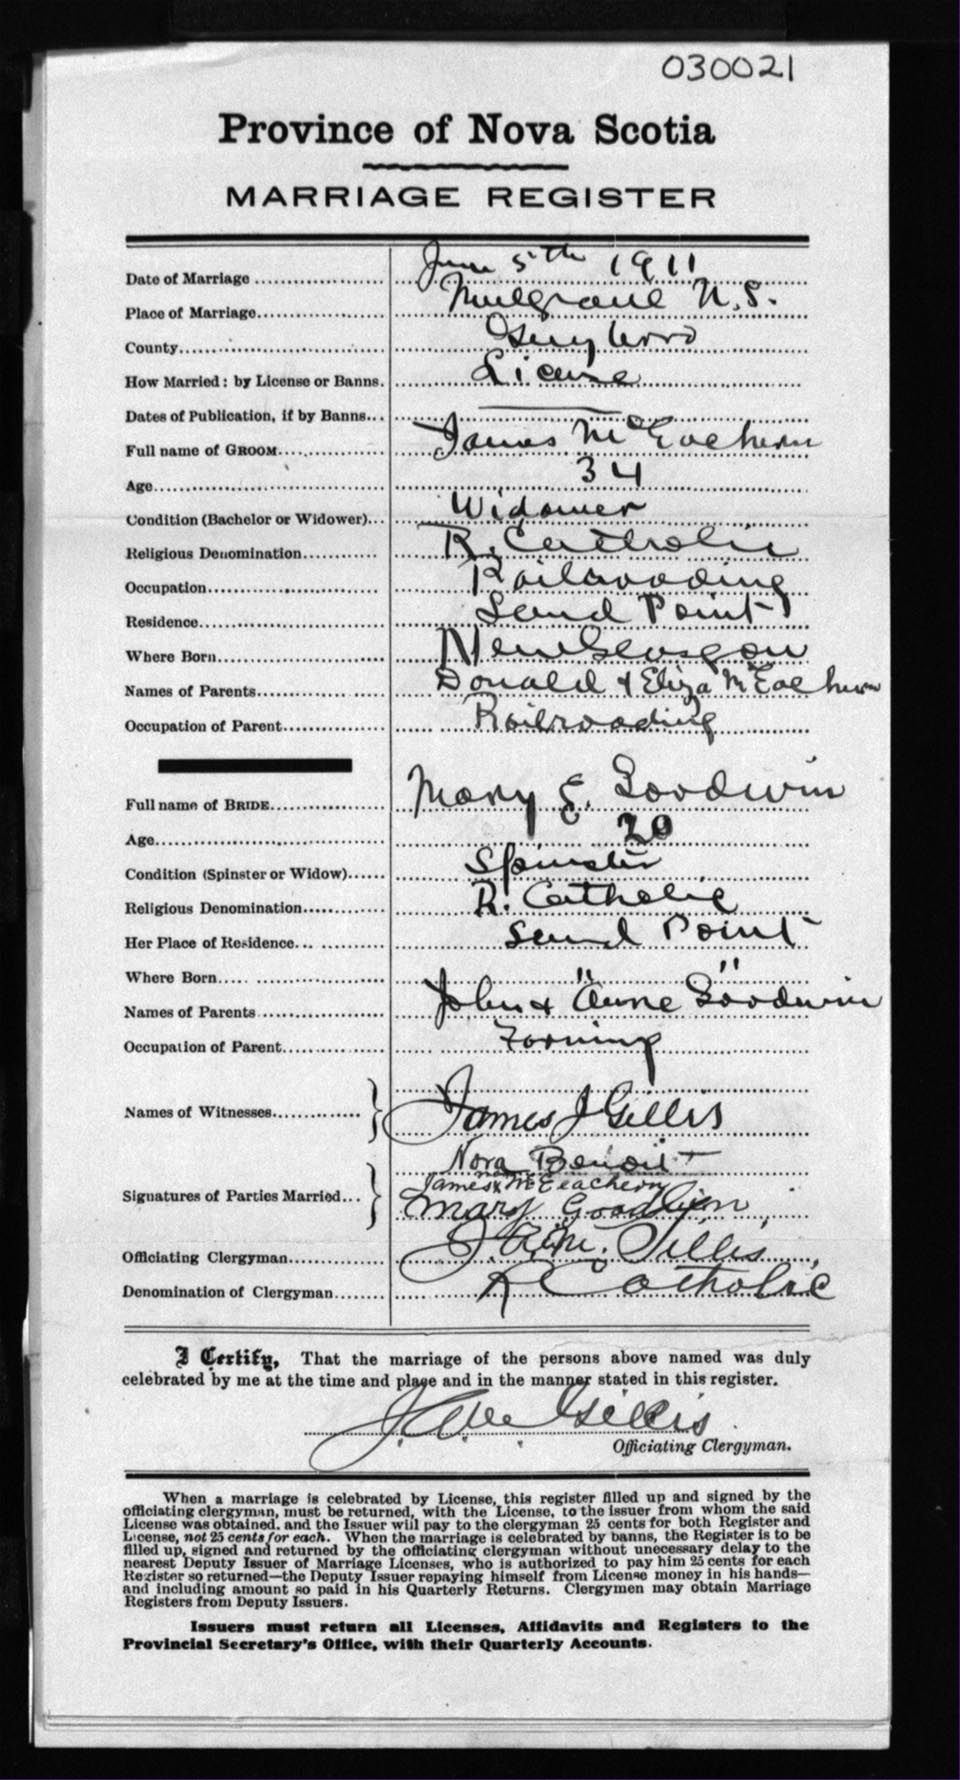 030021
Province of Nova Scotia
MARRIAGE REGISTER
Date of Marriage June 5th 1911
Place of Marriage Mulgrave N.S.
County Guysboro
How Married: by License or Banns. License
Dates of Publication, if by Banns
Full name of GROOM James McEachern
Age 34
Condition (Bachelor or Widower) Widower
Religious Denomination R. Catholic
Occupation Railroading
Residence Sand Point
Where Born New Glasgow
Names of Parents Donald & Eliza McEachern
Occupation of Parent Railroading
Full name of BRIDE Mary E. Goodwin
Age 20
Condition (Spinster or Widow) Spinster
Religious Denomination R. Catholic
Her Place of Residence Sand Point
Where Born " "
Names of Parents John & Anne Goodwin
Occupation of Parent Farming
Names of Witnesses James J Gillis
Nora Benoit
Signatures of Parties Married James McEeachern
Mary Goodwin
Officiating Clergyman Gillis
Denomination of Clergyman R Catholic
I Certify, That the marriage of the persons above named was duly
celebrated by me at the time and place and in the manner stated in this register.
Gillis
Officiating Clergyman.
When a marriage is celebrated by License, this register filled up and signed by the
officiating clergyman, must be returned, with the License, to the issuer from whom the said
License was obtained. and the Issuer will pay to the clergyman 25 cents for both Register and
License, not 25 cents for each. When the marriage is celebrated by banns, the Register is to be
filled up, signed and returned by the officiating clergyman without unecessary delay to the
nearest Deputy Issuer of Marriage Licenses, who is authorized to pay him 25 cents for each
Register so returned—the Deputy Issuer repaying himself from License money in his hands—
and including amount so paid in his Quarterly Returns. Clergymen may obtain Marriage
Registers from Deputy Issuers.
Issuers must return all Licenses, Affidavits and Registers to the
Provincial Secretary's Office, with their Quarterly Accounts.